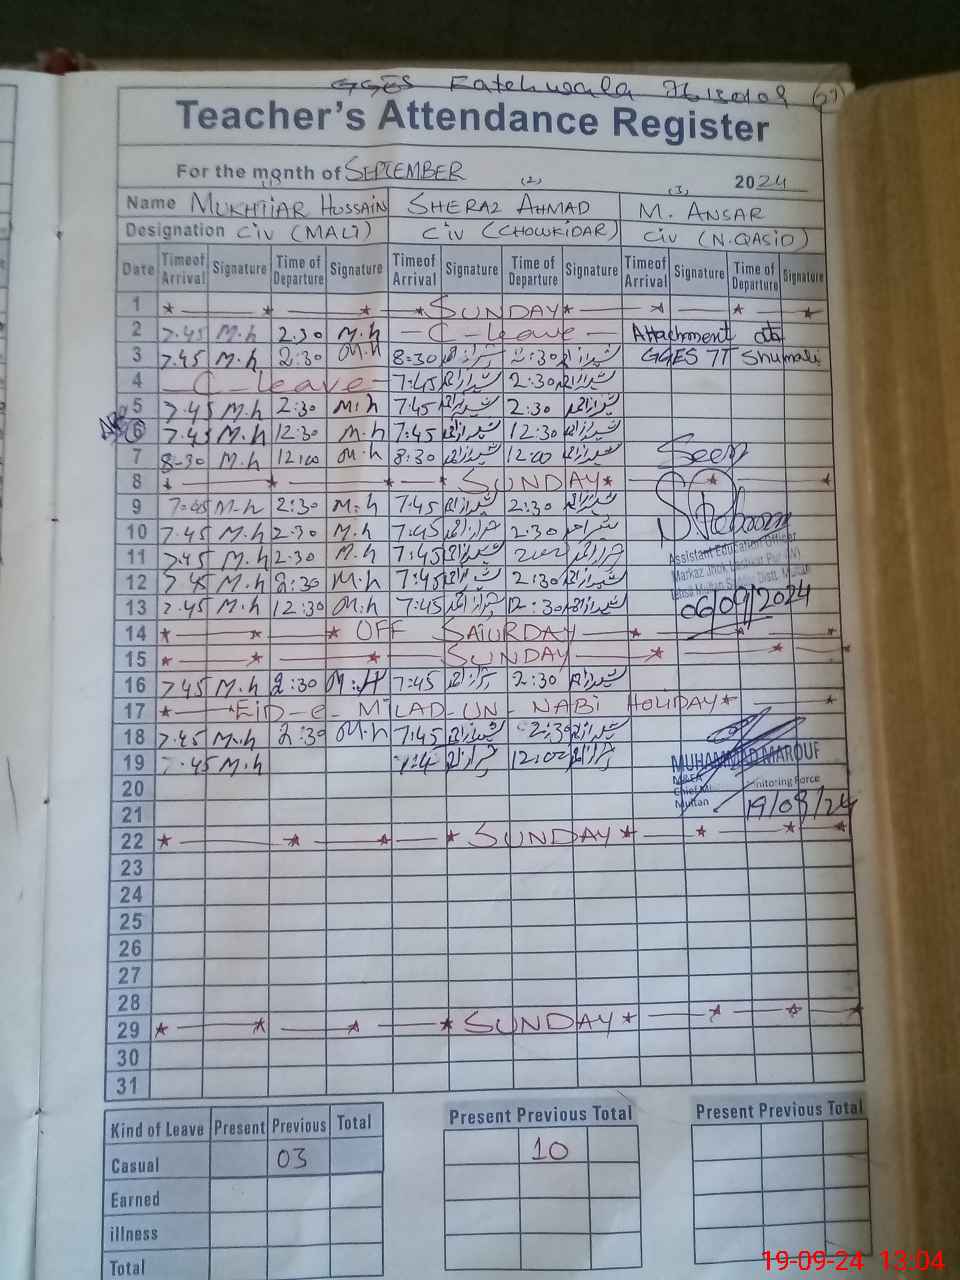 GGES Fatehwala
Teacher's Attendance Register
For the month of SEPTEMBER 2024
(1) (2) (3)
Name MUKHTIAR HUSSAIN SHERAZ AHMAD M. ANSAR
Designation CIV (MALI) CIV (CHOWKIDAR) CIV (N.QASID)
Date Time of Arrival Signature Time of Departure Signature Time of Arrival Signature Time of Departure Signature Time of Arrival Signature Time of Departure Signature
1 SUNDAY
2 7.45 M.h 2.30 M.h C-leave Attachment at
3 7.45 M.h 2:30 M.h 8:30 شیراز احمد 2:30 شیراز احمد GGES 7T Shumali
4 C-leave 7:45 شیراز احمد 2:30 شیراز احمد
5 7.45 M.h 2:30 M.h 7:45 شیراز احمد 2:30 شیراز احمد
6 7.45 M.h 12:30 M.h 7:45 شیراز احمد 12:30 شیراز احمد
7 8-30 M.h 12:00 M.h 8:30 شیراز احمد 12:00 شیراز احمد Seen
8 SUNDAY
9 7:45 M.h 2:30 M.h 7:45 شیراز احمد 2:30 شیراز احمد
10 7.45 M.h 2:30 M.h 7:45 شیراز احمد 2:30 شیراز احمد
11 7.45 M.h 2:30 M.h 7:45 شیراز احمد شیراز احمد Assistant Education Officer
12 7.45 M.h 2:30 M.h 7:45 شیراز احمد 2:30 شیراز احمد Markaz
13 7.45 M.h 12:30 M.h 7:45 شیراز احمد 12:30 شیراز احمد 06/09/2024
14 OFF SATURDAY
15 SUNDAY
16 7.45 M.h 2:30 M.H 7:45 شیراز احمد 2:30 شیراز احمد
17 EID-E-MILAD-UN-NABI HOLIDAY
18 7.45 M.h 2:30 M.h 7:45 شیراز احمد 2:30 شیراز احمد
19 7.45 M.h شیراز احمد 12:00 شیراز احمد MUHAMMAD MAROUF
20 MEA Monitoring Force
21 Multan 19/09/24
22 SUNDAY
23
24
25
26
27
28
29 SUNDAY
30
31
Kind of Leave Present Previous Total Present Previous Total Present Previous Total
Casual 03 10
Earned
illness
Total
19-09-24 13:04